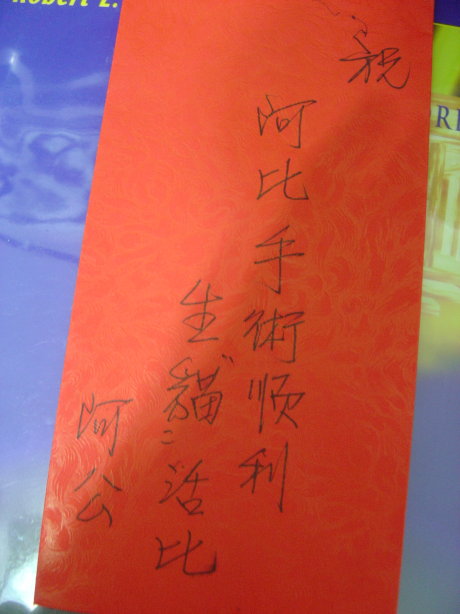 祝
阿比手術顺利
生貓活比
阿公
Robert L.